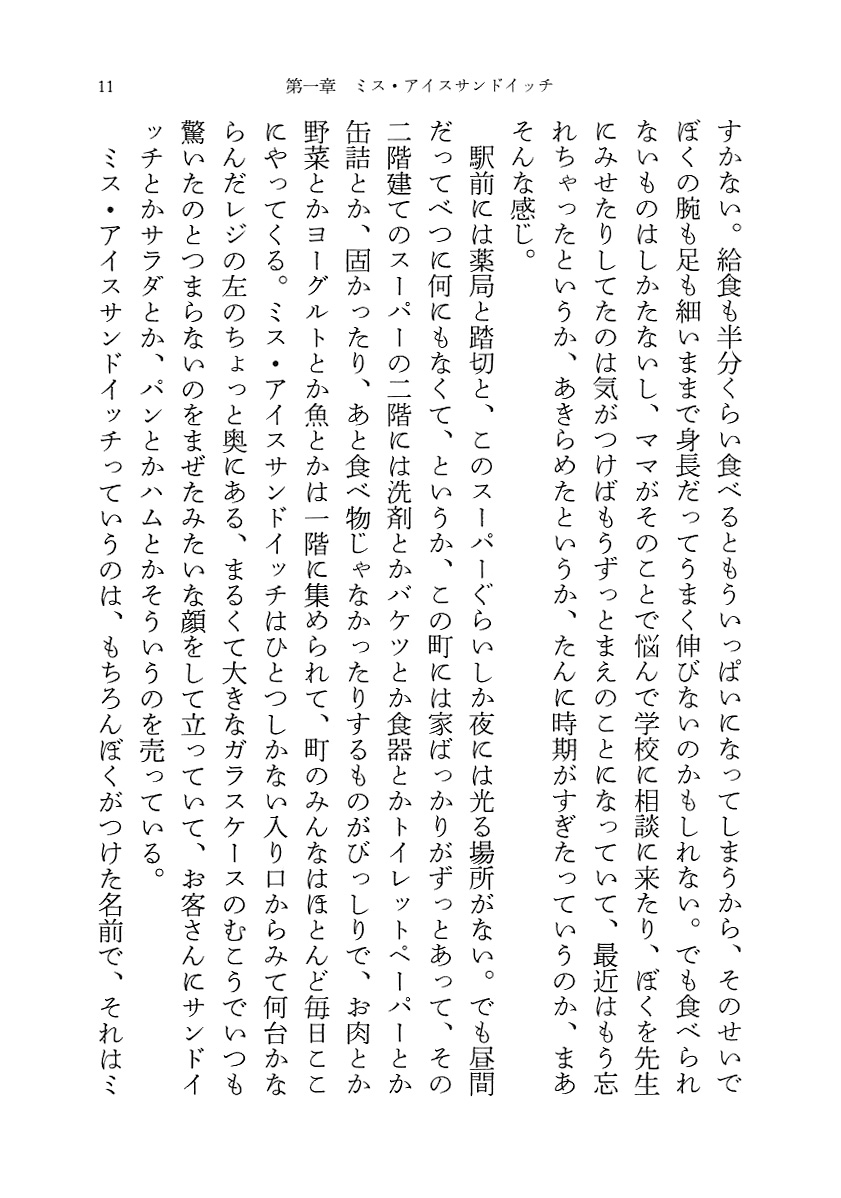 11
第一章　ミス・アイスサンドイッチ
すかない。給食も半分くらい食べるともういっぱいになってしまうから、そのせいで
ぼくの腕も足も細いままで身長だってうまく伸びないのかもしれない。でも食べられ
ないものはしかたないし、ママがそのことで悩んで学校に相談に来たり、ぼくを先生
にみせたりしてたのは気がつけばもうずっとまえのことになっていて、最近はもう忘
れちゃったというか、あきらめたというか、たんに時期がすぎたっていうのか、まあ
そんな感じ。
　駅前には薬局と踏切と、このスーパーぐらいしか夜には光る場所がない。でも昼間
だってべつに何にもなくて、というか、この町には家ばっかりがずっとあって、その
二階建てのスーパーの二階には洗剤とかバケツとか食器とかトイレットペーパーとか
缶詰とか、固かったり、あと食べ物じゃなかったりするものがびっしりで、お肉とか
野菜とかヨーグルトとか魚とかは一階に集められて、町のみんなはほとんど毎日ここ
にやってくる。ミス・アイスサンドイッチはひとつしかない入り口からみて何台かな
らんだレジの左のちょっと奥にある、まるくて大きなガラスケースのむこうでいつも
驚いたのとつまらないのをまぜたみたいな顔をして立っていて、お客さんにサンドイ
ッチとかサラダとか、パンとかハムとかそういうのを売っている。
　ミス・アイスサンドイッチっていうのは、もちろんぼくがつけた名前で、それはミ